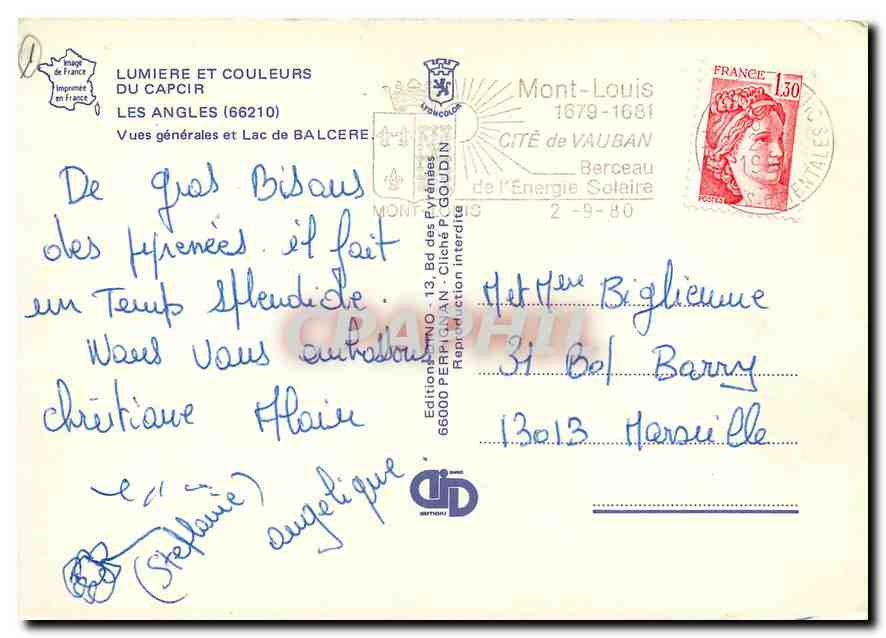 Image
de France
Imprimée
en France
LUMIERE ET COULEURS
DU CAPCIR
LES ANGLES (66210)
Vues générales et Lac de BALCERE.
LYONCOLOR
MONT-LOUIS
Mont-Louis
1679-1681
CITÉ de VAUBAN
Berceau
de l'Énergie Solaire
2-9-80
FRANCE 1,30
POSTES
De gros Bisous
des pyrenées. il fait
un Temps Splendide.
Nous Vous embrassons
Christiane Alain
(Steflanie)
angélique.
Editions DINO - 13, Bd des Pyrénées
66000 PERPIGNAN - Cliché P. GOUDIN
Reproduction interdite
M et Mme Biglienne
31 Bd Barry
13013 Marseille
EDITIONS
CPAPHIL